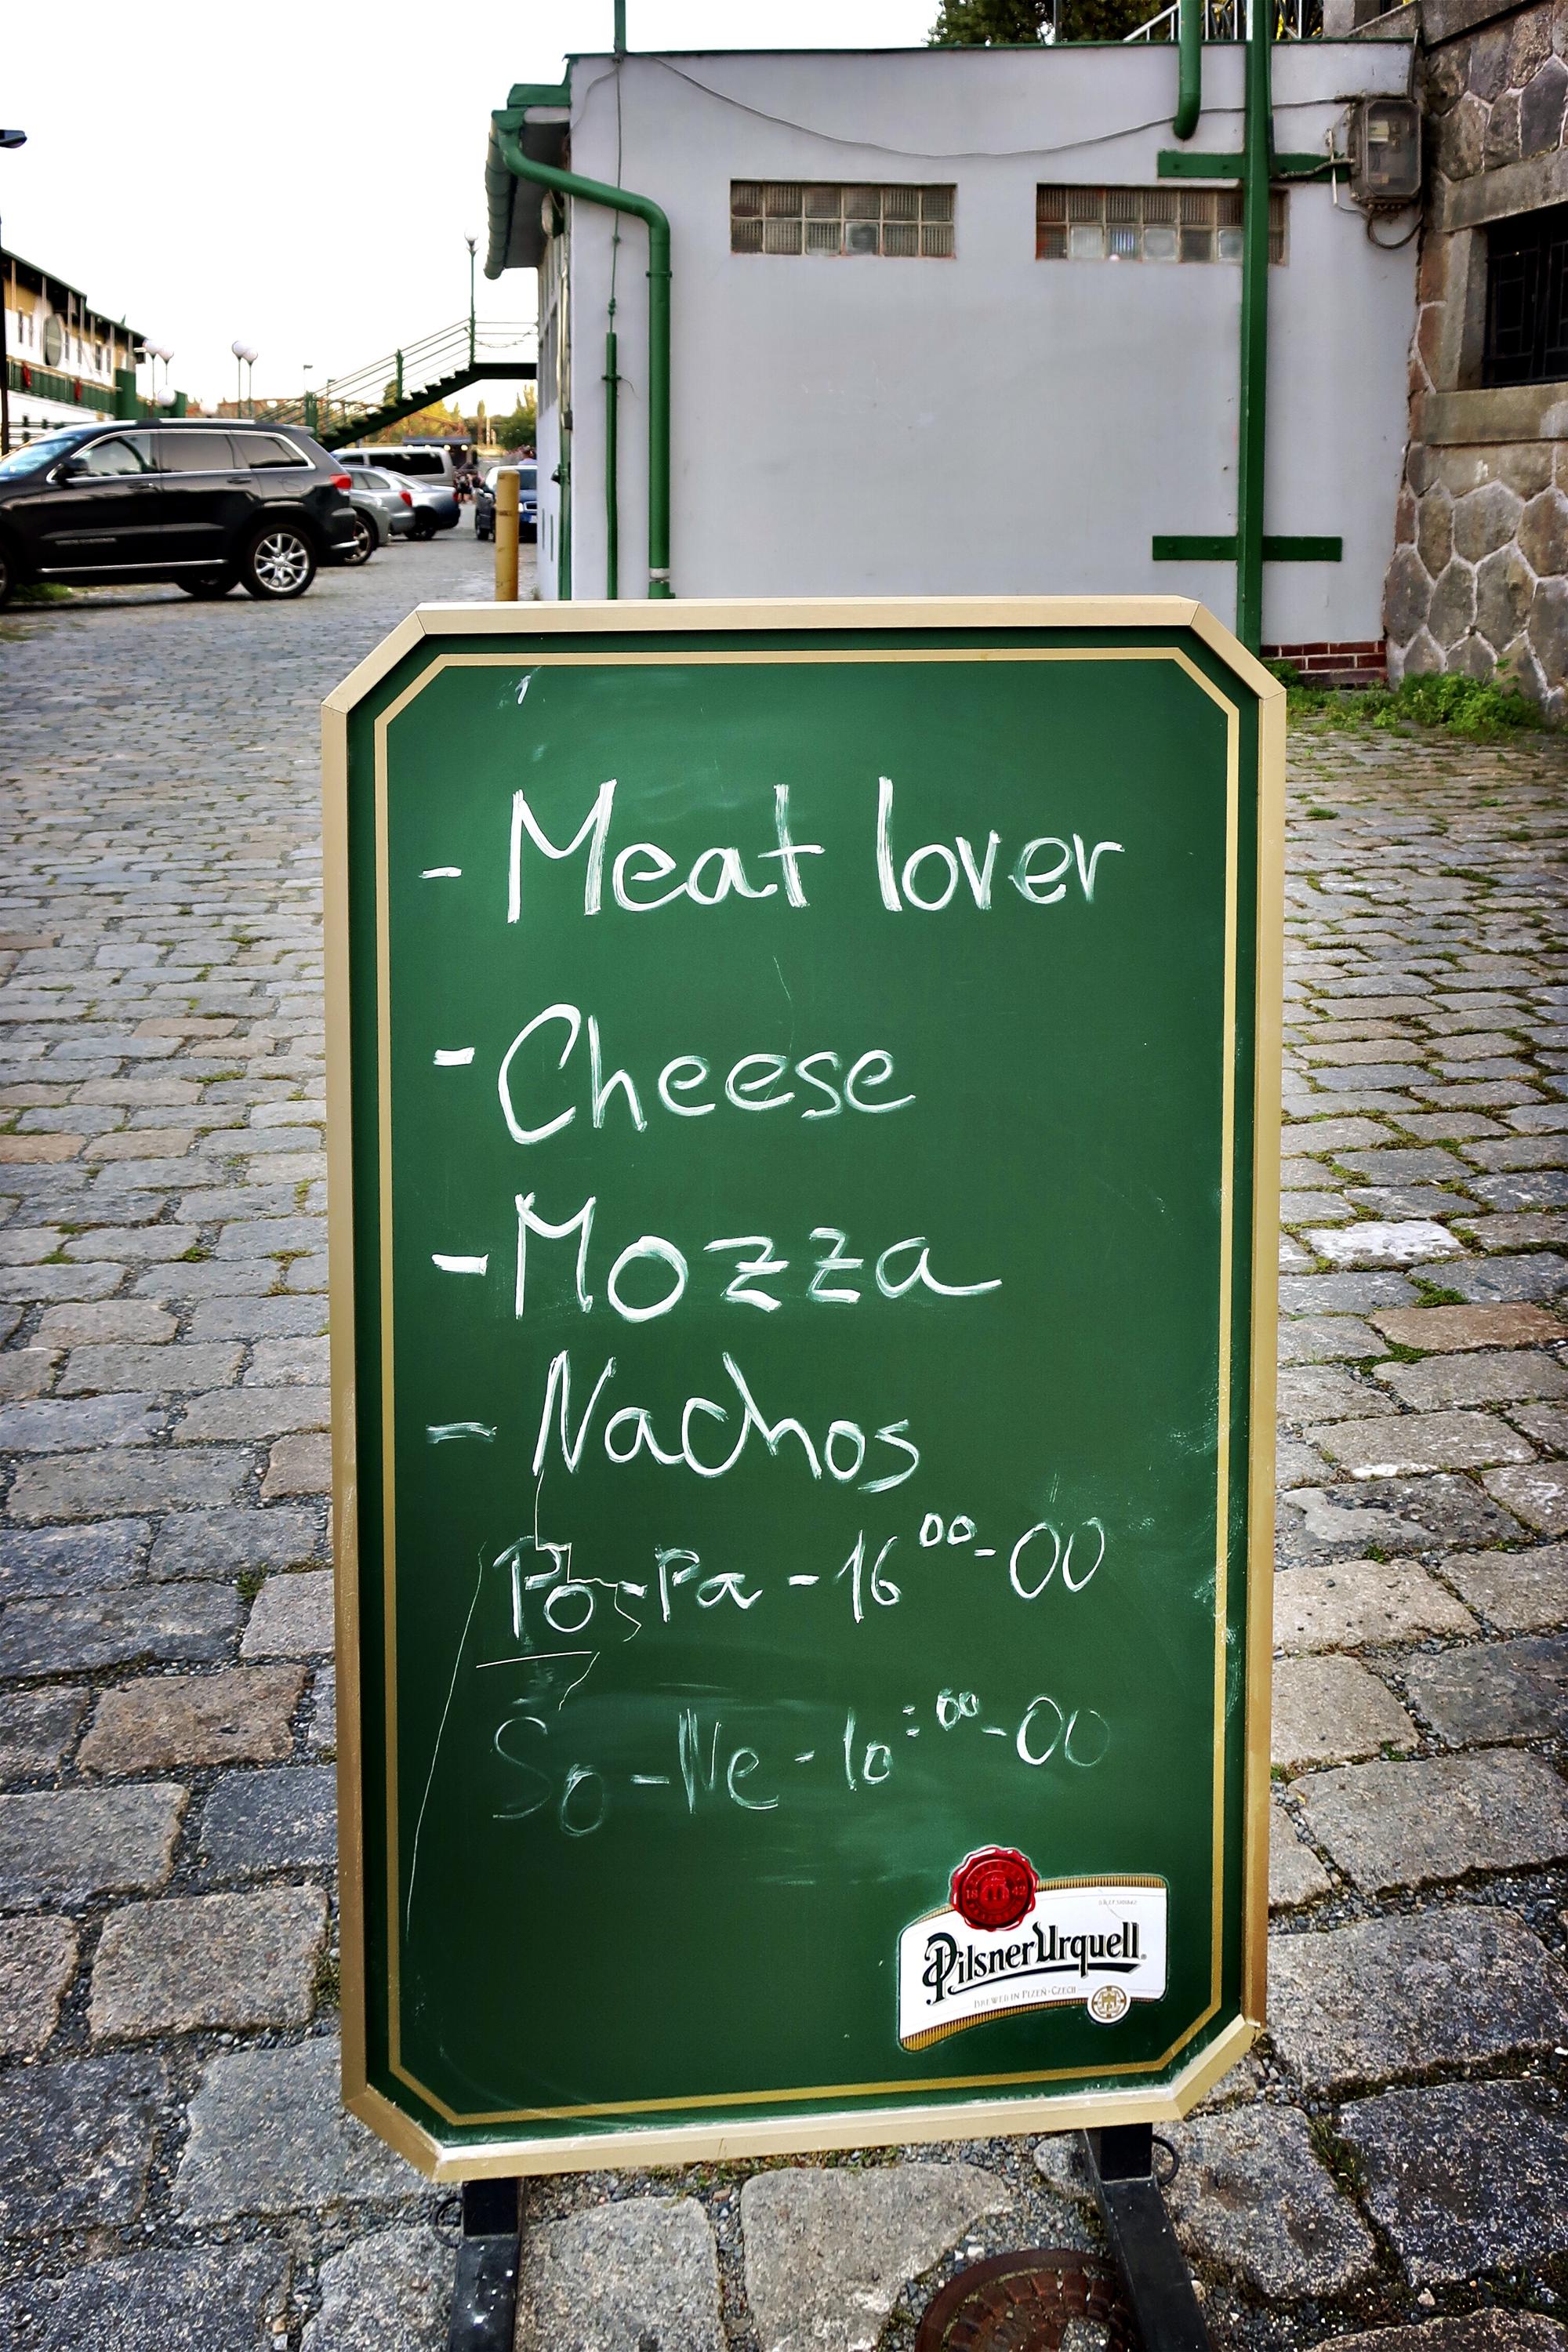 - Meat lover
- Cheese
- Mozza
- Nachos
Po - Pa - 16 00 - 00
So - Ne - 10 : 00 - 00
18 42
Pilsner Urquell
BREWED IN PLZEŇ · CZECH